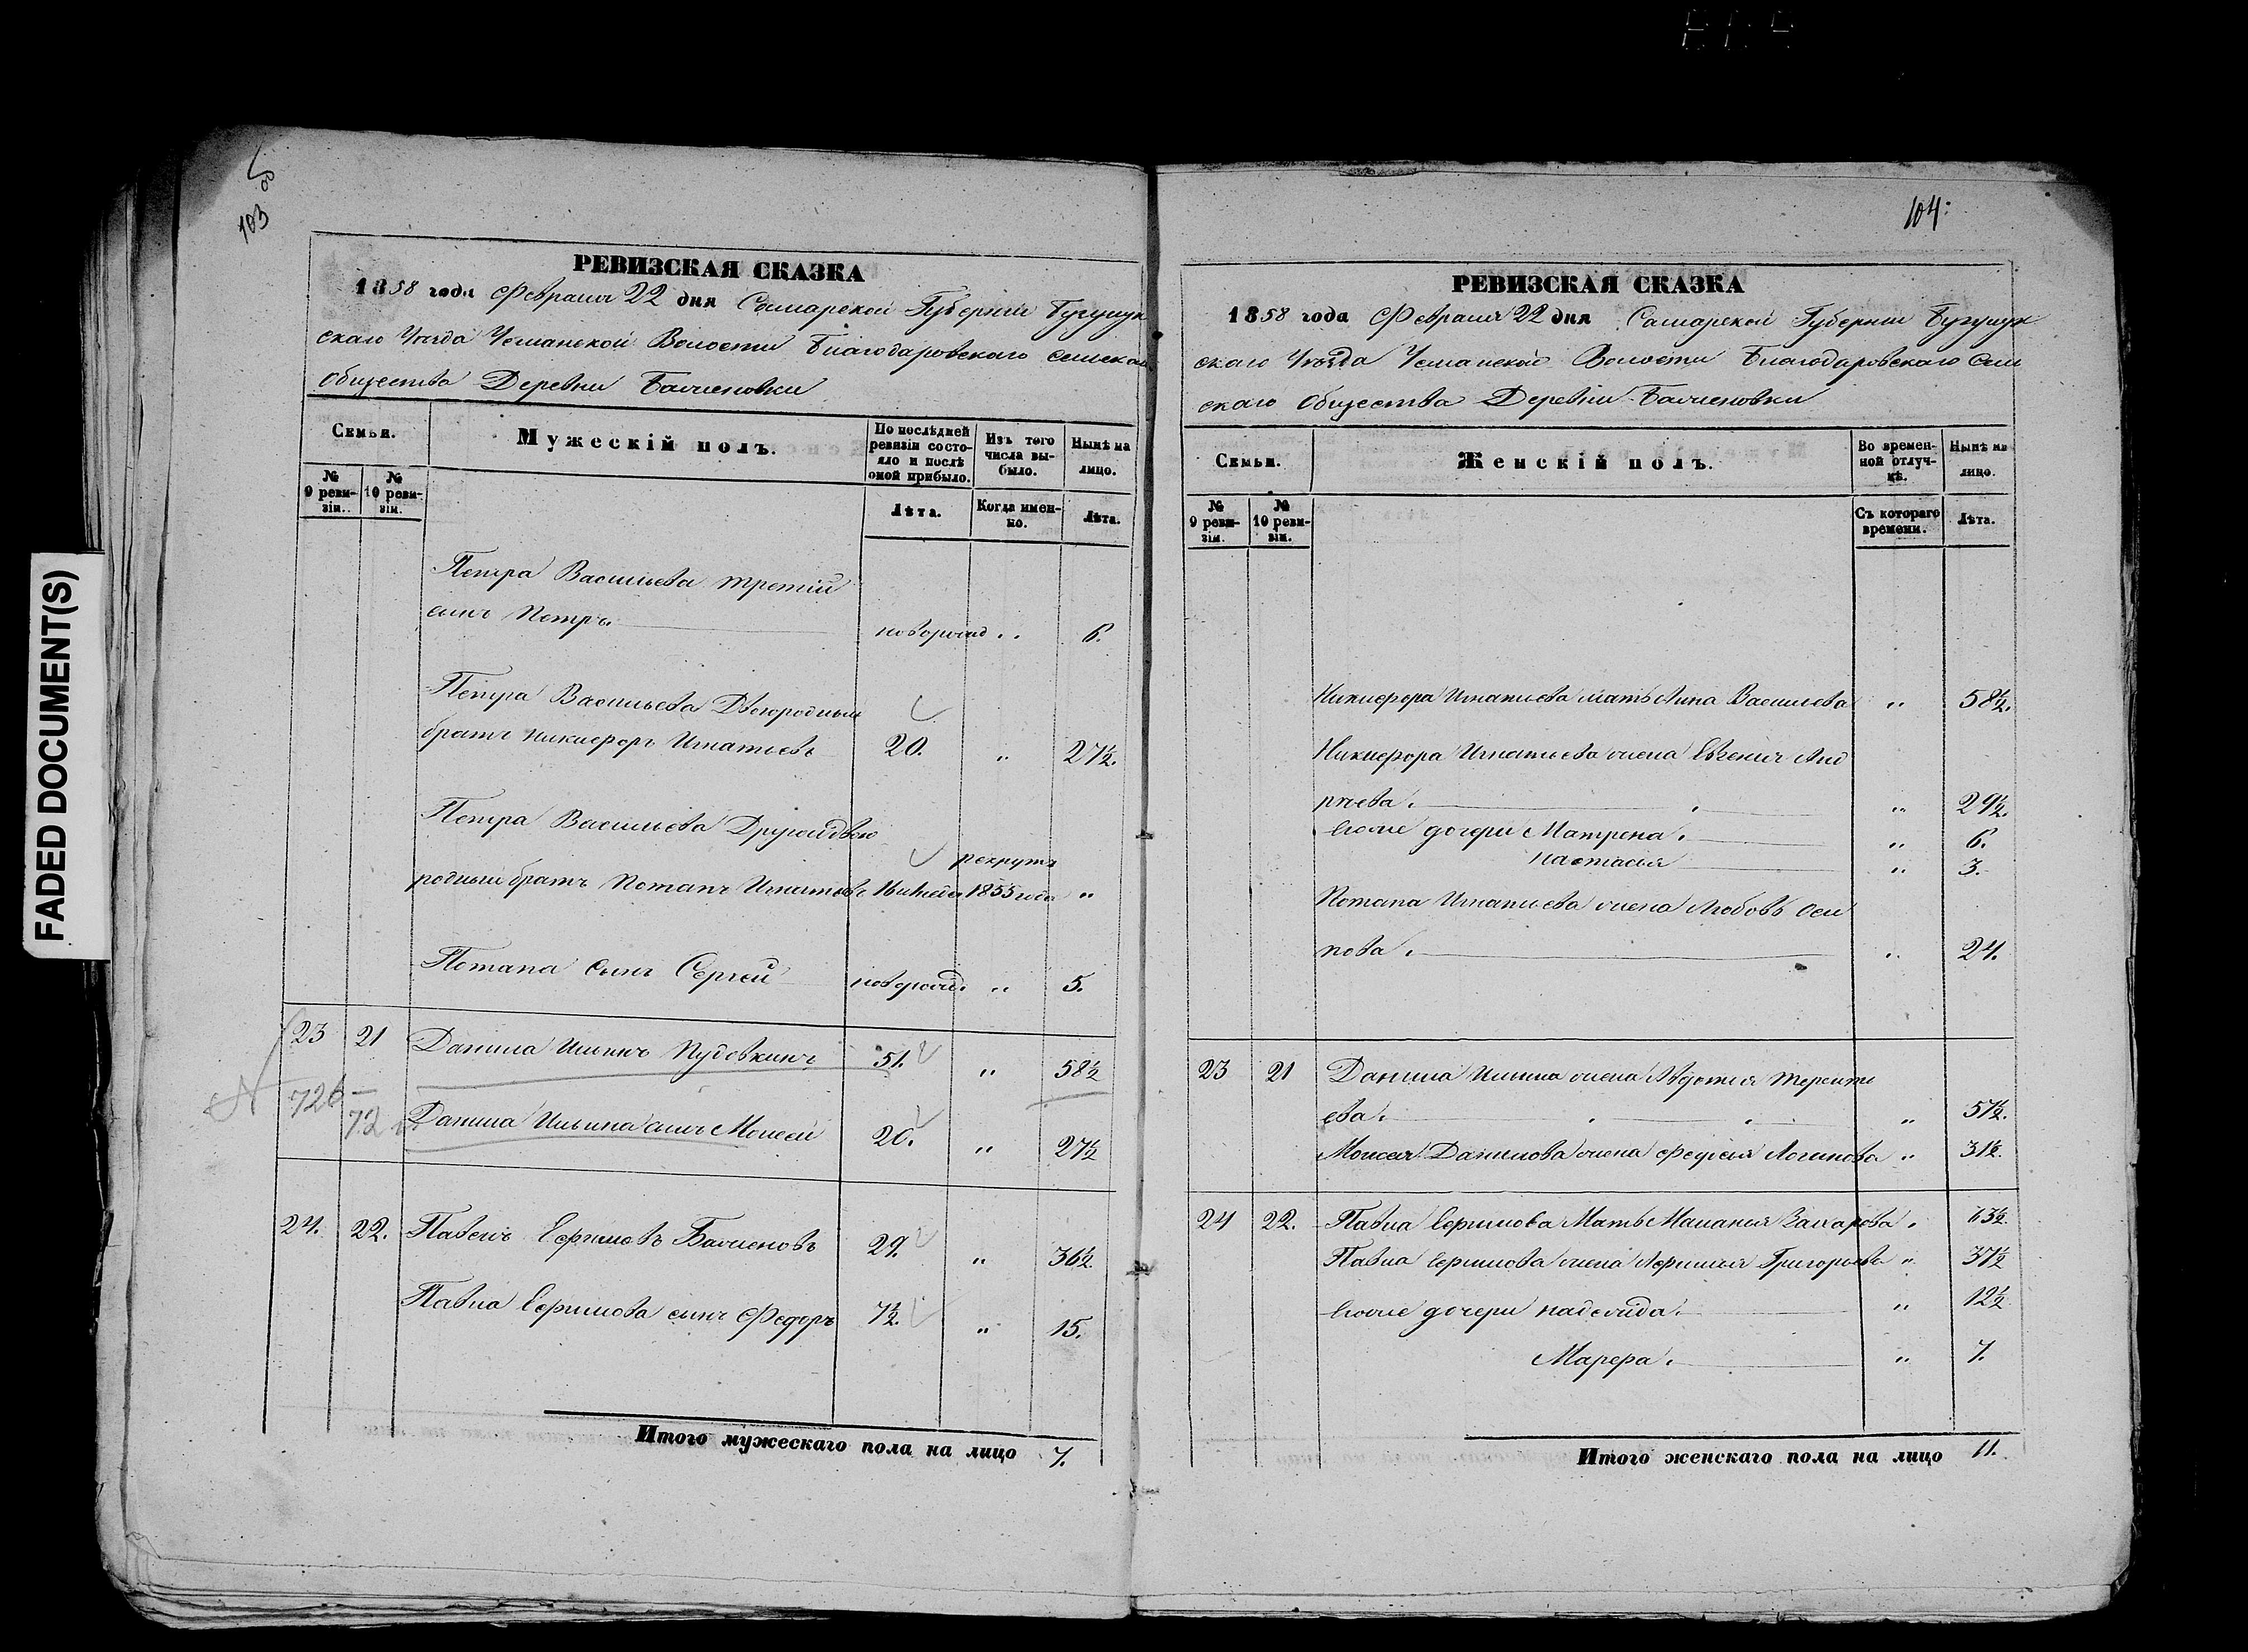 FADED DOCUMENT(S)
103
РЕВИЗСКАЯ СКАЗКА
1858 года Февраля 22 дня Самарской Губернiи Бугурус
скаго Уѣзда Волости Благодаровскаго сельскаго
Общества Деревни Баженовки
Семьи.
Мужескiй полъ.
По послѣдней
ревизiи состо-
яло и послѣ
оной прибыло.
Изъ того
числа вы-
было.
Нынѣ на
лицо.
№
9 реви-
зiи.
№
10 реви-
зiи.
Лѣта.
Когда имен-
но.
Лѣта.
Петра Васильева третiй
сынъ Петръ. новорожд „ 6.
Петра Васильева Двоюродный
братъ Никифоръ Игнатьевъ 20. „ 27½.
Петра Васильева Другой двою
рекрутъ
родный братъ Потапъ Игнатьевъ 1855 года „
Потапа сынъ Сергѣй новорожд. „ 5.
23 21 Данила Ильинъ Пудовкинъ 51. „ 58½
72
Данила Ильина сынъ Моисей 20. „ 27½
24. 22. Павелъ Ефимовъ Баженовъ 29. „ 36½.
Павла Ефимова сынъ Федоръ 7½. „ 15.
Итого мужескаго пола на лицо 7.
104.
РЕВИЗСКАЯ СКАЗКА
1858 года Февраля 22 дня Самарской Губернiи Бугурус
скаго Уѣзда Волости Благодаровскаго Сель
скаго Общества Деревни Баженовки
Семьи.
Женскiй полъ.
Во времен-
ной отлуч-
кѣ.
Нынѣ на
лицо.
№
9 реви-
зiи.
№
10 реви-
зiи.
Съ котораго
времени.
Лѣта.
Никифора Игнатьева мать Анна Васильева „ 58½.
Никифора Игнатьева жена Евгенiя Анд
рѣева. „ 29½.
Ихъ дочери Матрена. „ 6.
Настасья „ 3.
Потапа Игнатьева жена Любовь Оси
пова. „ 24.
23 21 Данила Ильина жена Авдотья Теренть
ева. „ 57½.
Моисея Данилова жена Логинова „ 31½.
24 22. Павла Ефимова Мать Маланья Захарова. 63½.
Павла Ефимова жена Афимья Григорьева „ 37½
Ихъ дочери Надежда. „ 12½
Марфа. „ 7.
Итого женскаго пола на лицо 11.